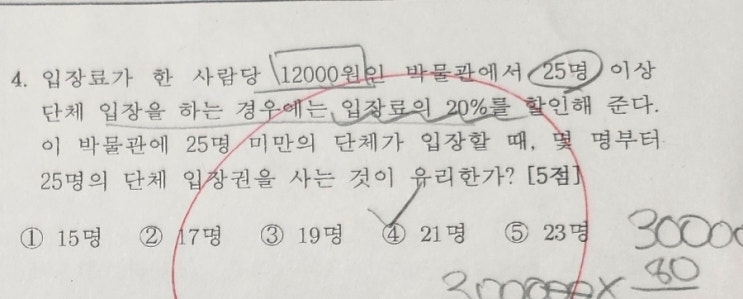 4. 입장료가 한 사람당 12000원인 박물관에서 25명 이상
단체 입장을 하는 경우에는 입장료의 20%를 할인해 준다.
이 박물관에 25명 미만의 단체가 입장할 때, 몇 명부터
25명의 단체 입장권을 사는 것이 유리한가? [5점]
① 15명 ② 17명 ③ 19명 ④ 21명 ⑤ 23명
80